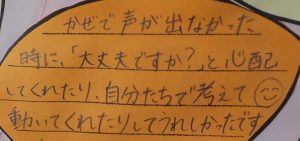 かぜで声が出なかった
時に、「大丈夫ですか?」と心配
してくれたり、自分たちで考えて
動いてくれたりしてうれしかったです